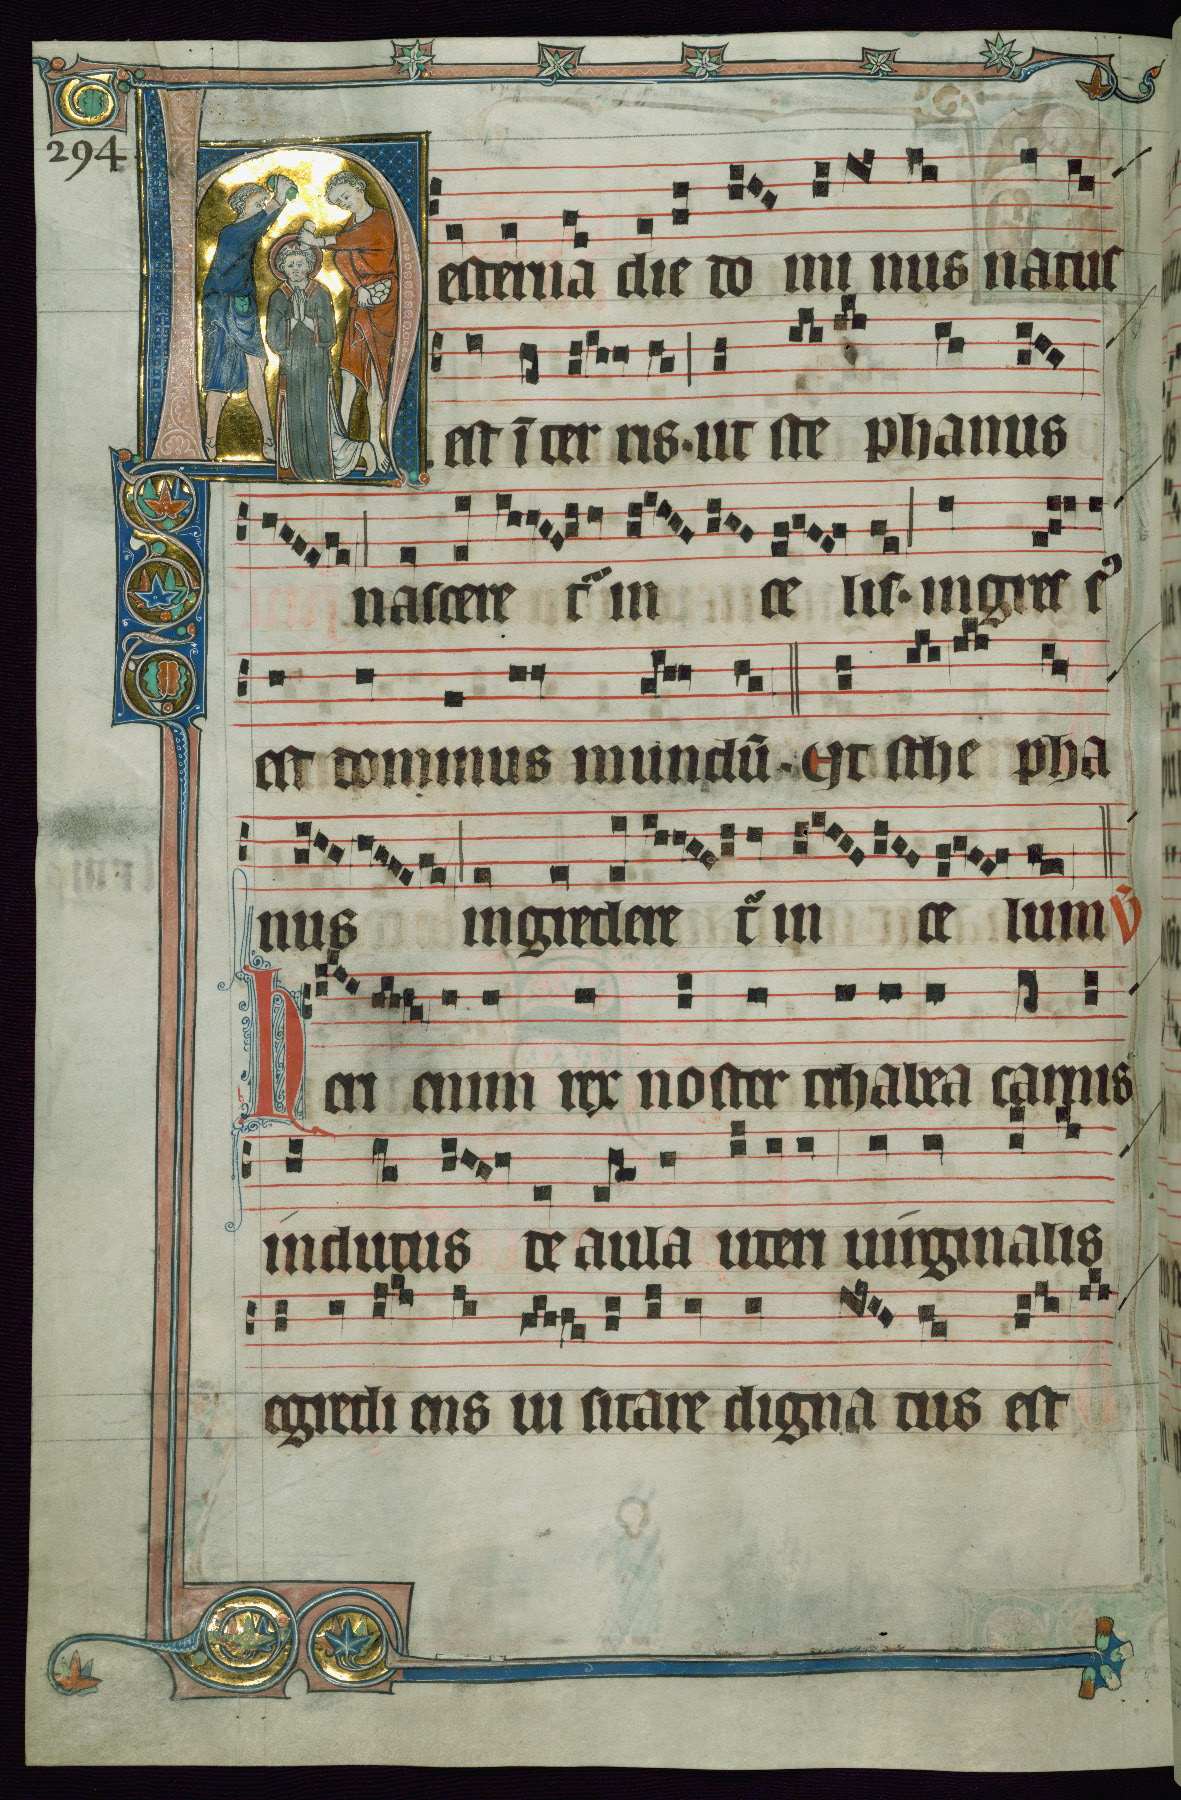 294
Hesterna die do mi nus natus
est ī ter ris · ut ste phanus
nascere t᷑ in ce lis · ingres sꝰ
est dominus mundū · Ut sthe pha
nus ingredere t᷑ in ce lum ℣
heri enim rex noster trhabea carnis
indutus de aula uteri uirginalis
egredi ens ui sitare digna tus est